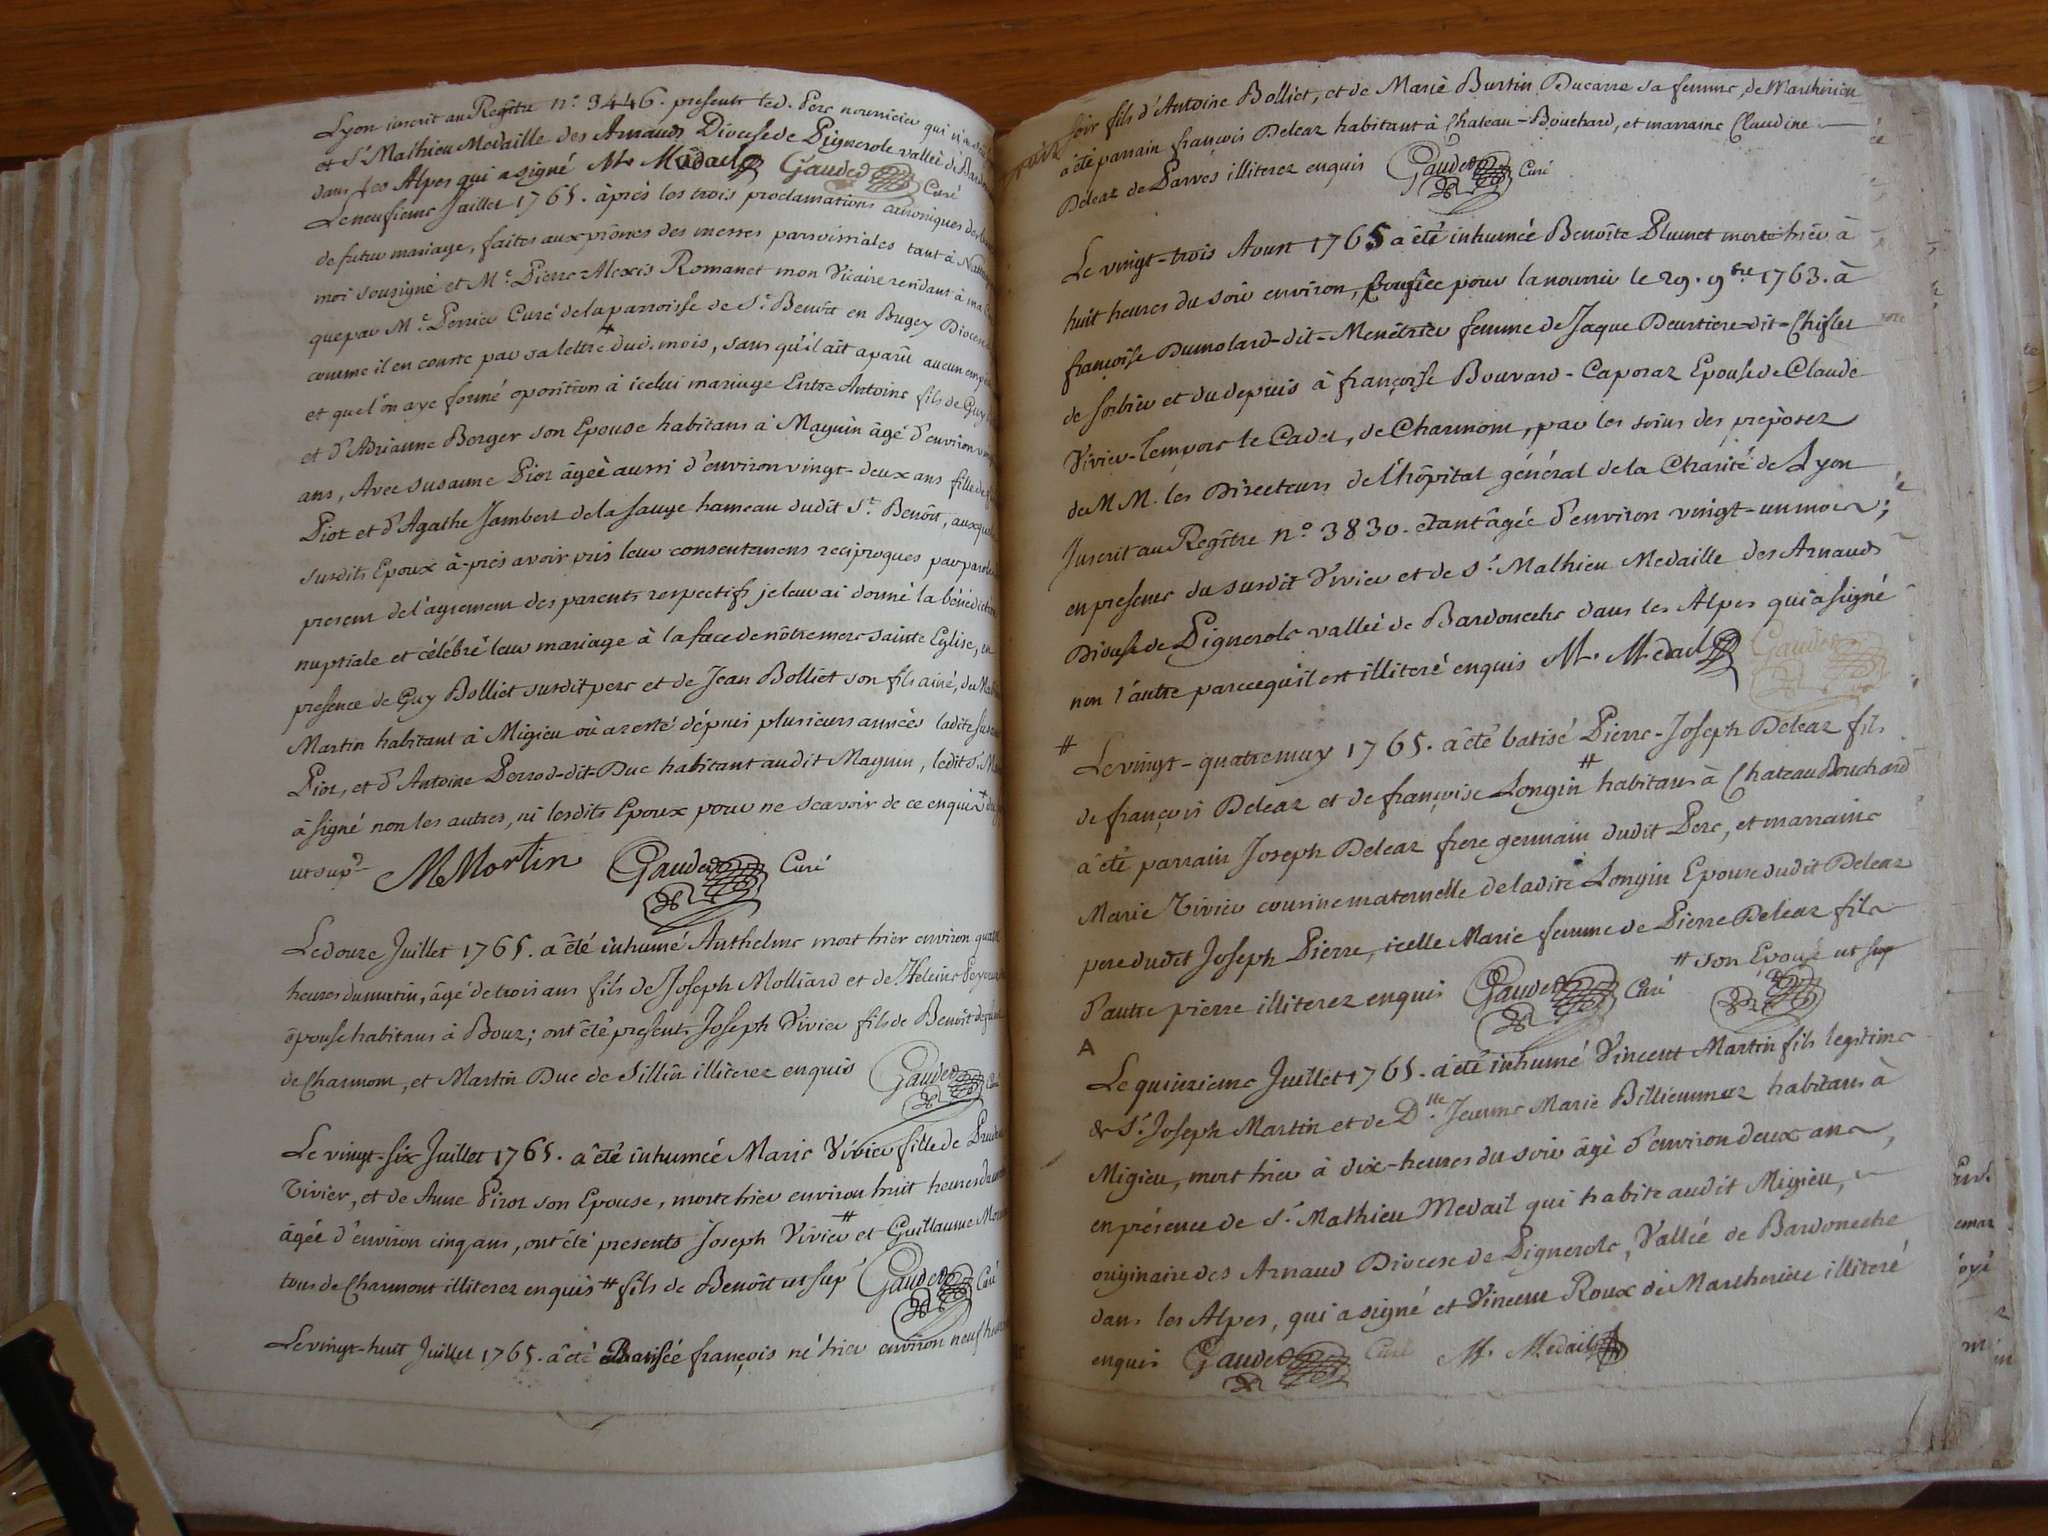 Lyon inscrit au Regître n.º 3446. presents led. Pere nourricier qui n'a
et S.r Mathieu Medaille des Arnauds Diocese de Pignerole vallée de
dans les Alpes qui a signé M. Medail Gaudet Curé
Le neufieme Juillet 1765. àprès les trois proclamations canoniques de
de futur mariage, faites aux prônes des messes parroissiales tant à
moi sousigné et M.e Pierre Alexis Romanet mon Vicaire rendant à
que par M.e Perrier Curé de la parroisse de S.t Benôit en Bugey
comme il en conste par sa lettre dud. mois, sans qu'il ait aparu aucun
et que l'on aye formé oposition à icelui mariage Entre Antoine fils de Guy
et d'Adrianne Berger son Epouse habitans à Magnin âgé d'environ
ans, Avec Susanne Piot âgée aussi d'environ vingt-deux ans fille de
Piot et d'Agathe Jambert de la Sauge hameau dudit S.t Benôit,
susdits Epoux à-près avoir pris leur consentemens reciproques par
present de l'agrement des parents respectifs je leur ai donné la bénédiction
nuptiale et célébré leur mariage à la face de nôtre mere sainte Eglise, en
presence de Guy Bolliet susdit pere et de Jean Bolliet son fils ainé,
Martin habitant à Migieu où a resté depuis plusieurs années ladite
Piot, et d'Antoine Perrod-dit-Duc habitant audit Magnin, ledit
à signé non les autres, ni lesdits Epoux pour ne scavoir de ce enquis
ut sup.à M Martin Gaudet Curé
Le douze Juillet 1765. a êté inhumé Anthelme mort hier environ
heures du matin, âgé de trois ans fils de Joseph Molliard et de Heleine
êpouse habitans à Bouz; ont êté presents Joseph Vivier fils de Benôit
de Charmont, et Martin Duc de Sillin illiterez enquis Gaudet Curé
Le vingt-six Juillet 1765. a êté inhumée Marie Vivier fille de
Vivier, et de Anne Pirot son Epouse, morte hier environ huit heures
âgée d'environ cinq ans, ont êté presents Joseph Vivier # et Guillaume
tous de Charmont illiterez enquis # fils de Benôit ut sup Gaudet Curé
Le vingt-huit Juillet 1765. a êté Batisée françois né hier environ neuf
soir fils d'Antoine Bolliet, et de Marie Burtin Ducarre sa femme, de Marcherieu
a êté parrain françois Deleaz habitant à Chateau-Bouchard, et marraine Claudine
Deleaz de Parves illiterez enquis Gaudet Curé
Le vingt-trois Aoust 1765 a êté inhumée Benoîte Plumet morte hier à
huit heures du soir environ, confiée pour la nourrir le 29. 9.bre 1763. à
françoise Dumolard-dit-Menétrier femme de Jaque Deurtiere-dit-Chifler
de Sorbier et du depuis à françoise Bouvard-Caporaz Epouse de Claude
Vivier-Lempore le Cadet, de Charmont, par les soins des preposez
de M M. les Directeurs de l'hôpital général de la Charité de Lyon
Inscrit au Regître n.º 3830. étant âgée d'environ vingt-un mois;
en presence du susdit Vivier et de S.r Mathieu Medaille des Arnauds
Diocese de Pignerole vallée de Bardoneche dans les Alpes qui a signé
non l'autre parcequ'il est illiteré enquis M. Medail Gaudet
# Le vingt-quatre may 1765. a êté batisé Pierre-Joseph Deleaz fils
de françois Deleaz et de françoise Longin # habitans à Chateau Bouchard
a êté parrain Joseph Deleaz frere germain dudit Pere, et marraine
Marie Vivier cousine maternelle de ladite Longin Epouse dudit Deleaz
pere dudit Joseph Pierre, icelle Marie femme de Pierre Deleaz fils
d'autre pierre illiterez enquis Gaudet Curé # son Epouse ut sup
A
Le quinzieme Juillet 1765. a êté inhumé Vincent Martin fils legitime
de S.r Joseph Martin et de D.lle Jeanne Marie Billiemmaz habitans à
Migieu, mort hier à dix-heures du soir âgé d'environ deux ans,
en présence de S.r Mathieu Medail qui habite audit Migieu,
originaire des Arnaud Diocese de Pignerole, Vallée de Bardoneche
dans les Alpes, qui a signé et Vincent Roux de Marcherieu illiteré
enquis Gaudet Curé M. Medail